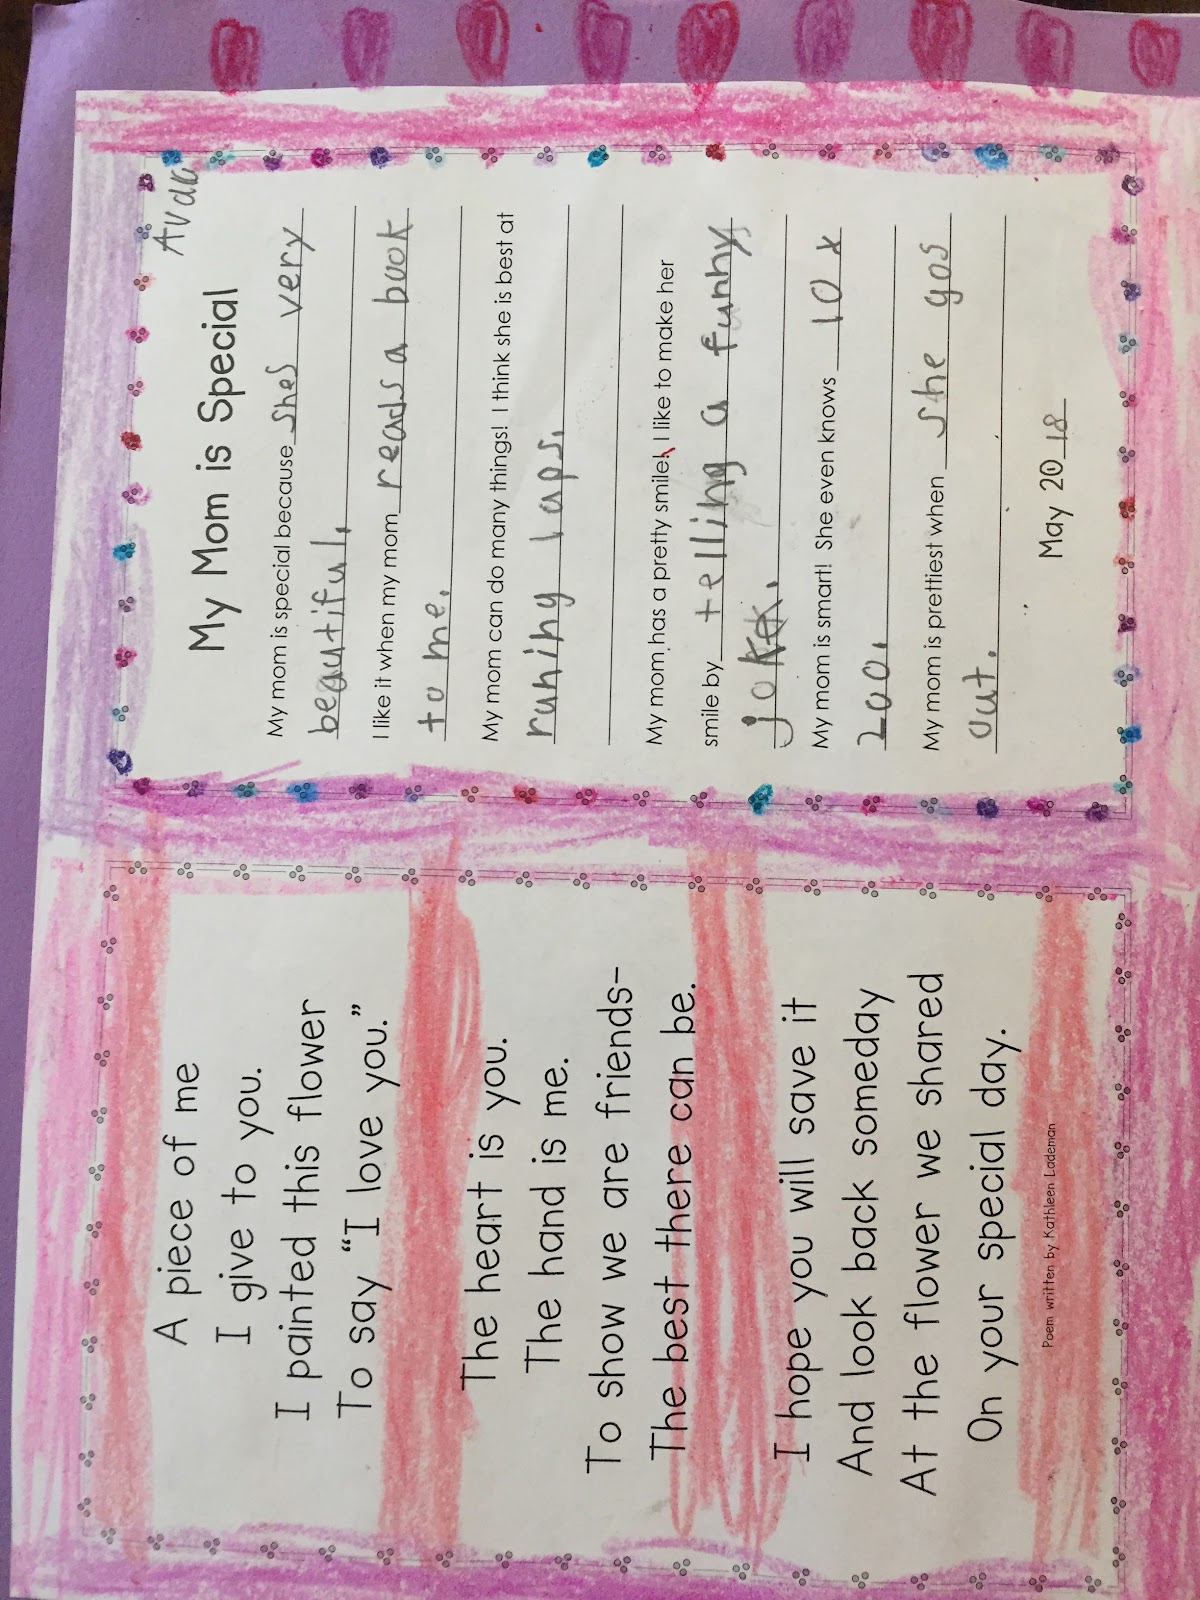 A piece of me
I give to you.
I painted this flower
To say “I love you.”
The heart is you.
The hand is me.
To show we are friends-
The best there can be.
I hope you will save it
And look back someday
At the flower we shared
On your special day.
Poem written by Kathleen Lademan
My Mom is Special
My mom is special because shes very
beautiful.
I like it when my mom reads a book
to me.
My mom can do many things! I think she is best at
runing laps.
My mom has a pretty smile! I like to make her
smile by telling a funny
joke.
My mom is smart! She even knows 10 x
200.
My mom is prettiest when she gos
out.
May 2018